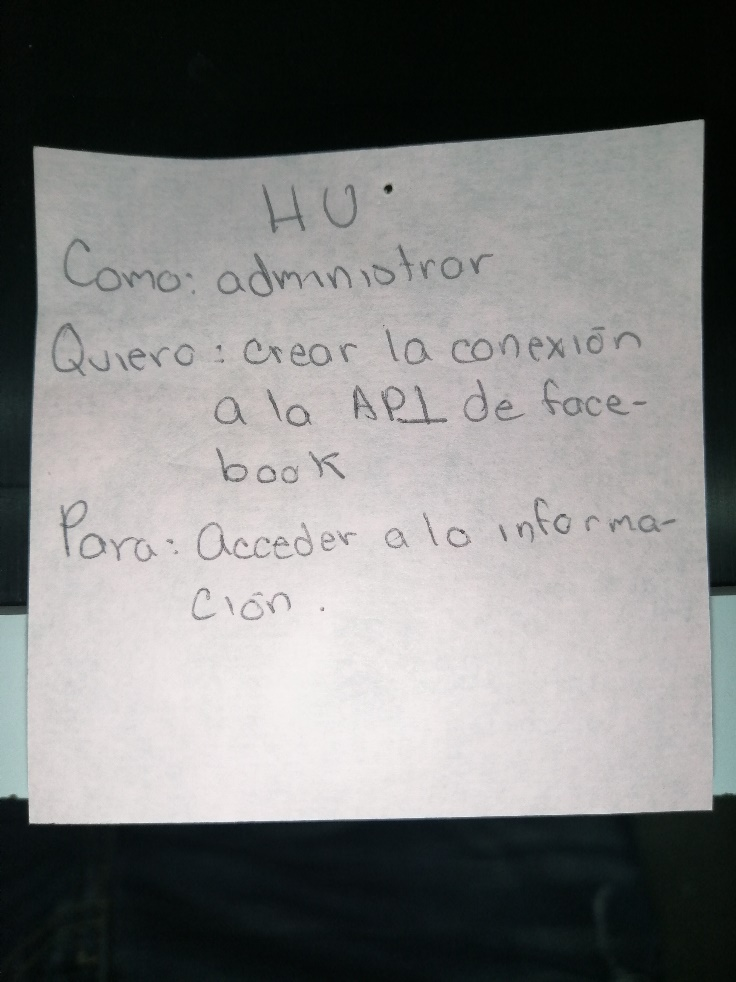 HU
Como: administrar
Quiero: crear la conexión
a la API de face-
book
Para: Acceder a la informa-
ción.